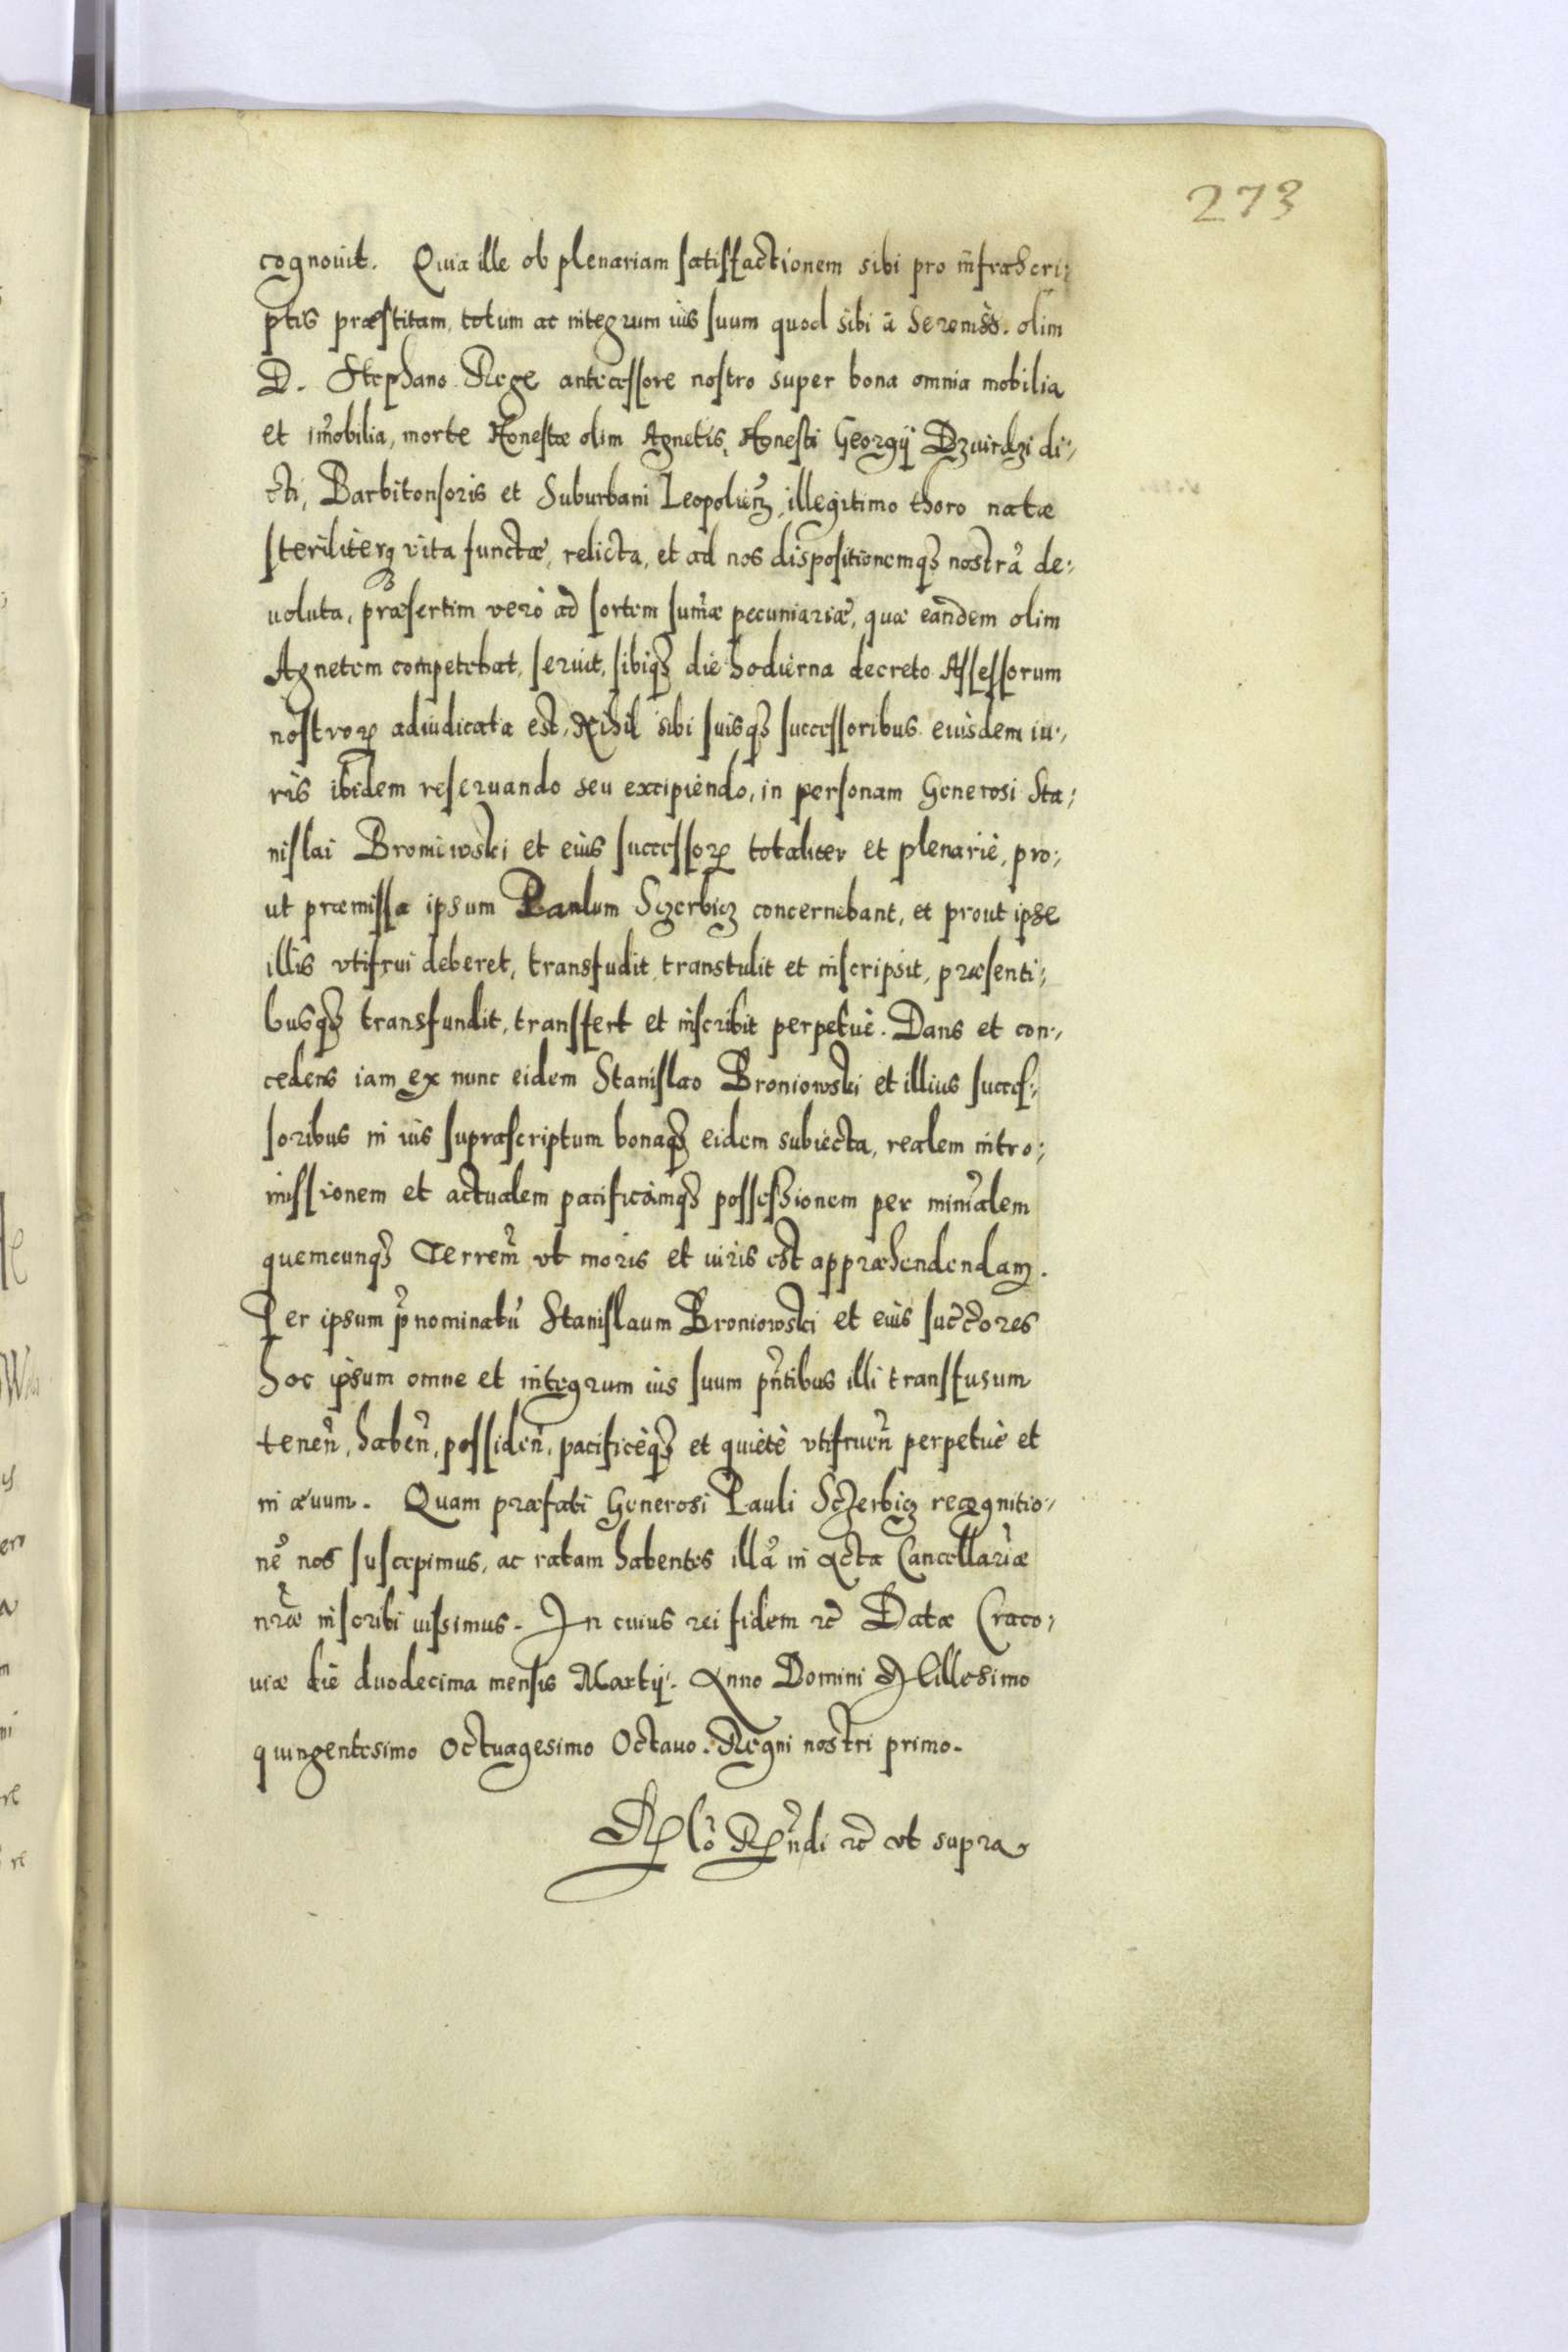 273
cognouit. Quia ille ob plenariam satisfactionem sibi pro infrascri:
ptis præstitam, totum ac integrum ius suum quod sibi à Sereniss. olim
D. Stephano Rege antecessore nostro super bona omnia mobilia
et im̃obilia, morte Honestæ olim Agnetis, Honesti Georgij Dzwirdzi di:
cti, Barbitonsoris et Suburbani Leopolien̄, illegitimo thoro natæ
steriliterq́ vita functæ, relicta, et ad nos dispositionemq́ȝ nostrã de:
uoluta, præsertim verò ad sortem sum̃æ pecuniariæ, quæ eandem olim
Agnetem competebat, seruit, sibiq́ȝ die hodierna decreto Assessorum
nostroꝝ adiudicata est, Nihil sibi suisq́ȝ successoribus eiusdem iu:
ris ibidem reseruando seu excipiendo, in personam Generosi Sta:
nislai Broniowski et eius successoꝝ totaliter et plenariè, pro:
ut præmissa ipsum Paulum Sczerbicz concernebant, et prout ipse
illis vtifrui deberet, transfudit, transtulit et inscripsit, præsenti:
busq́ȝ transfundit, transfert et inscribit perpetuè. Dans et con:
cedens iam ex nunc eidem Stanislao Broniowski et illius succes:
soribus in ius suprascriptum bonaq́ȝ eidem subiecta, realem intro:
missionem et actualem pacificamq́ȝ possessionem per minr̃alem
quemcunq́ȝ Terrem̃ vt moris et iuris est appræhendendam.
Per ipsum p̃nominatũ Stanislaum Broniowski et eius succ̃ores
hoc ipsum omne et integrum ius suum pñtibus illi transfusum
tenen̄, haben̄, possiden̄, pacificèq́ȝ et quietè vtifruen̄ perpetuè et
in æuum. Quam præfati Generosi Pauli Sczerbicz recognitio:
nẽ nos suscepimus, ac ratam habentes illã in Acta Cancellariæ
nr̃æ inscribi iussimus. In cuius rei fidem ꝛc̄ Datæ Craco:
uiæ die duodecima mensis Martij. Anno Domini Millesimo
quingentesimo Octuagesimo Octauo. Regni nostri primo.
Rlõ Rñdi ꝛc̄ vt supra